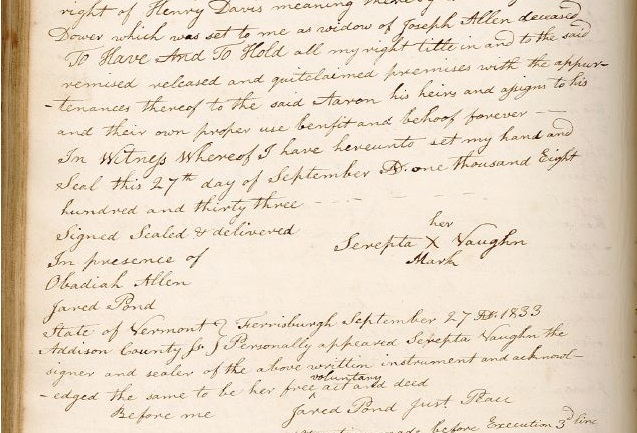 right of Henry Davis meaning thereby
Dower which was set to me as widow of Joseph Allen deceased
To Have And To Hold all my right title in and to the said
remised released and quitelaimed premises with the appur-
-tenances thereof to the said Aaron his heirs and assigns to his
and their own proper use benfit and behoof forever —
In Witness Whereof I have hereunto set my hand and
Seal this 27th day of September AD. one thousand Eight
hundred and thirty three
Signed Sealed & delivered
In presence of
Obadiah Allen
Jared Pond
her
Serepta X Vaughn
Mark
State of Vermont } Ferrisburgh September 27 AD. 1833
Addison County Ss } Personally appeared Serepta Vaughn the
signer and sealer of the above written instrument and acknowl-
-edged the same to be her free voluntary act and deed
Before me Jared Pond Just. Peace
made before Execution 3d line